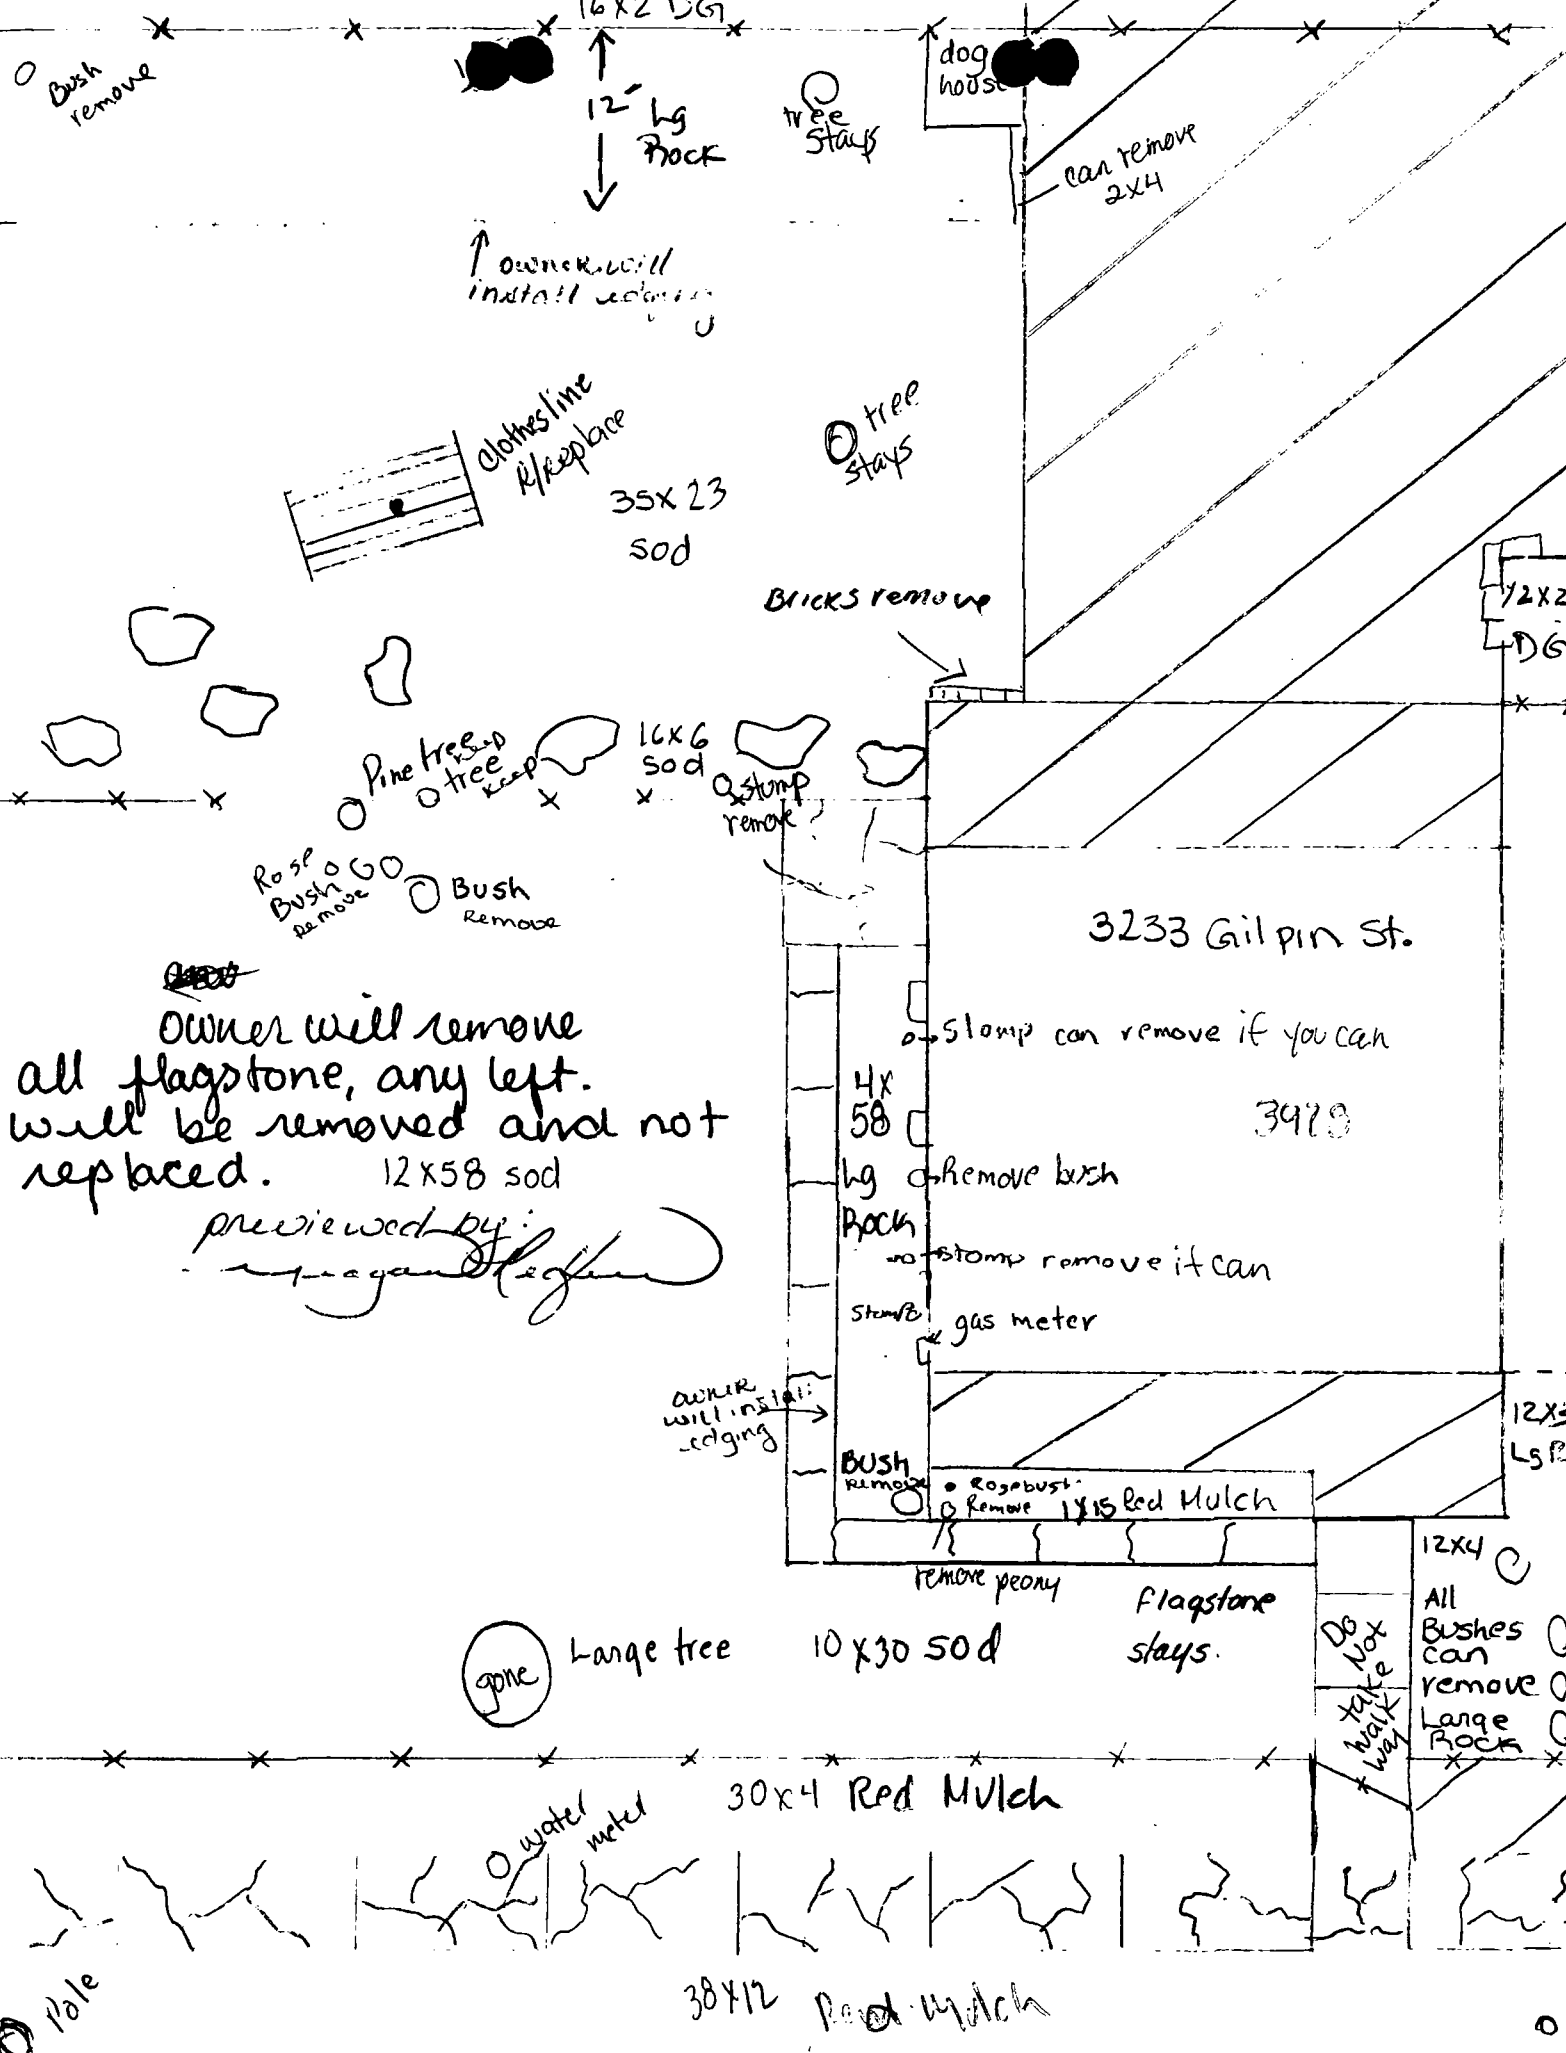 16X2 DG
Bush
remove
12' Lg
Rock
tree
stays
dog
house
can remove
2X4
owner will
install edging
Clothesline
R/Replace
tree
stays
35X23
sod
Bricks remove
12X2
DG
Pine tree keep
tree
keep
16X6
sod
stump
remove
Rose
Bush
Remove
Bush
Remove
3233 Gilpin St.
owner will remove
all flagstone, any left.
will be removed and not
replaced.
12X58 sod
previewed by:
Stomp can remove if you can
3928
4X
58
Lg
Rock
Remove bush
stomp remove if can
stomp
gas meter
owner
will install
edging
Bush
Remove
Rosebush
Remove
1X15 Red Mulch
12X3
Lg R
remove peony
flagstone
stays.
12X4
All
Bushes
can
remove
Large
Rock
Do
Not
take
walk
way
gone
Large tree
10X30 Sod
30x4 Red Mulch
water
meter
Pole
38X12 Red Mulch